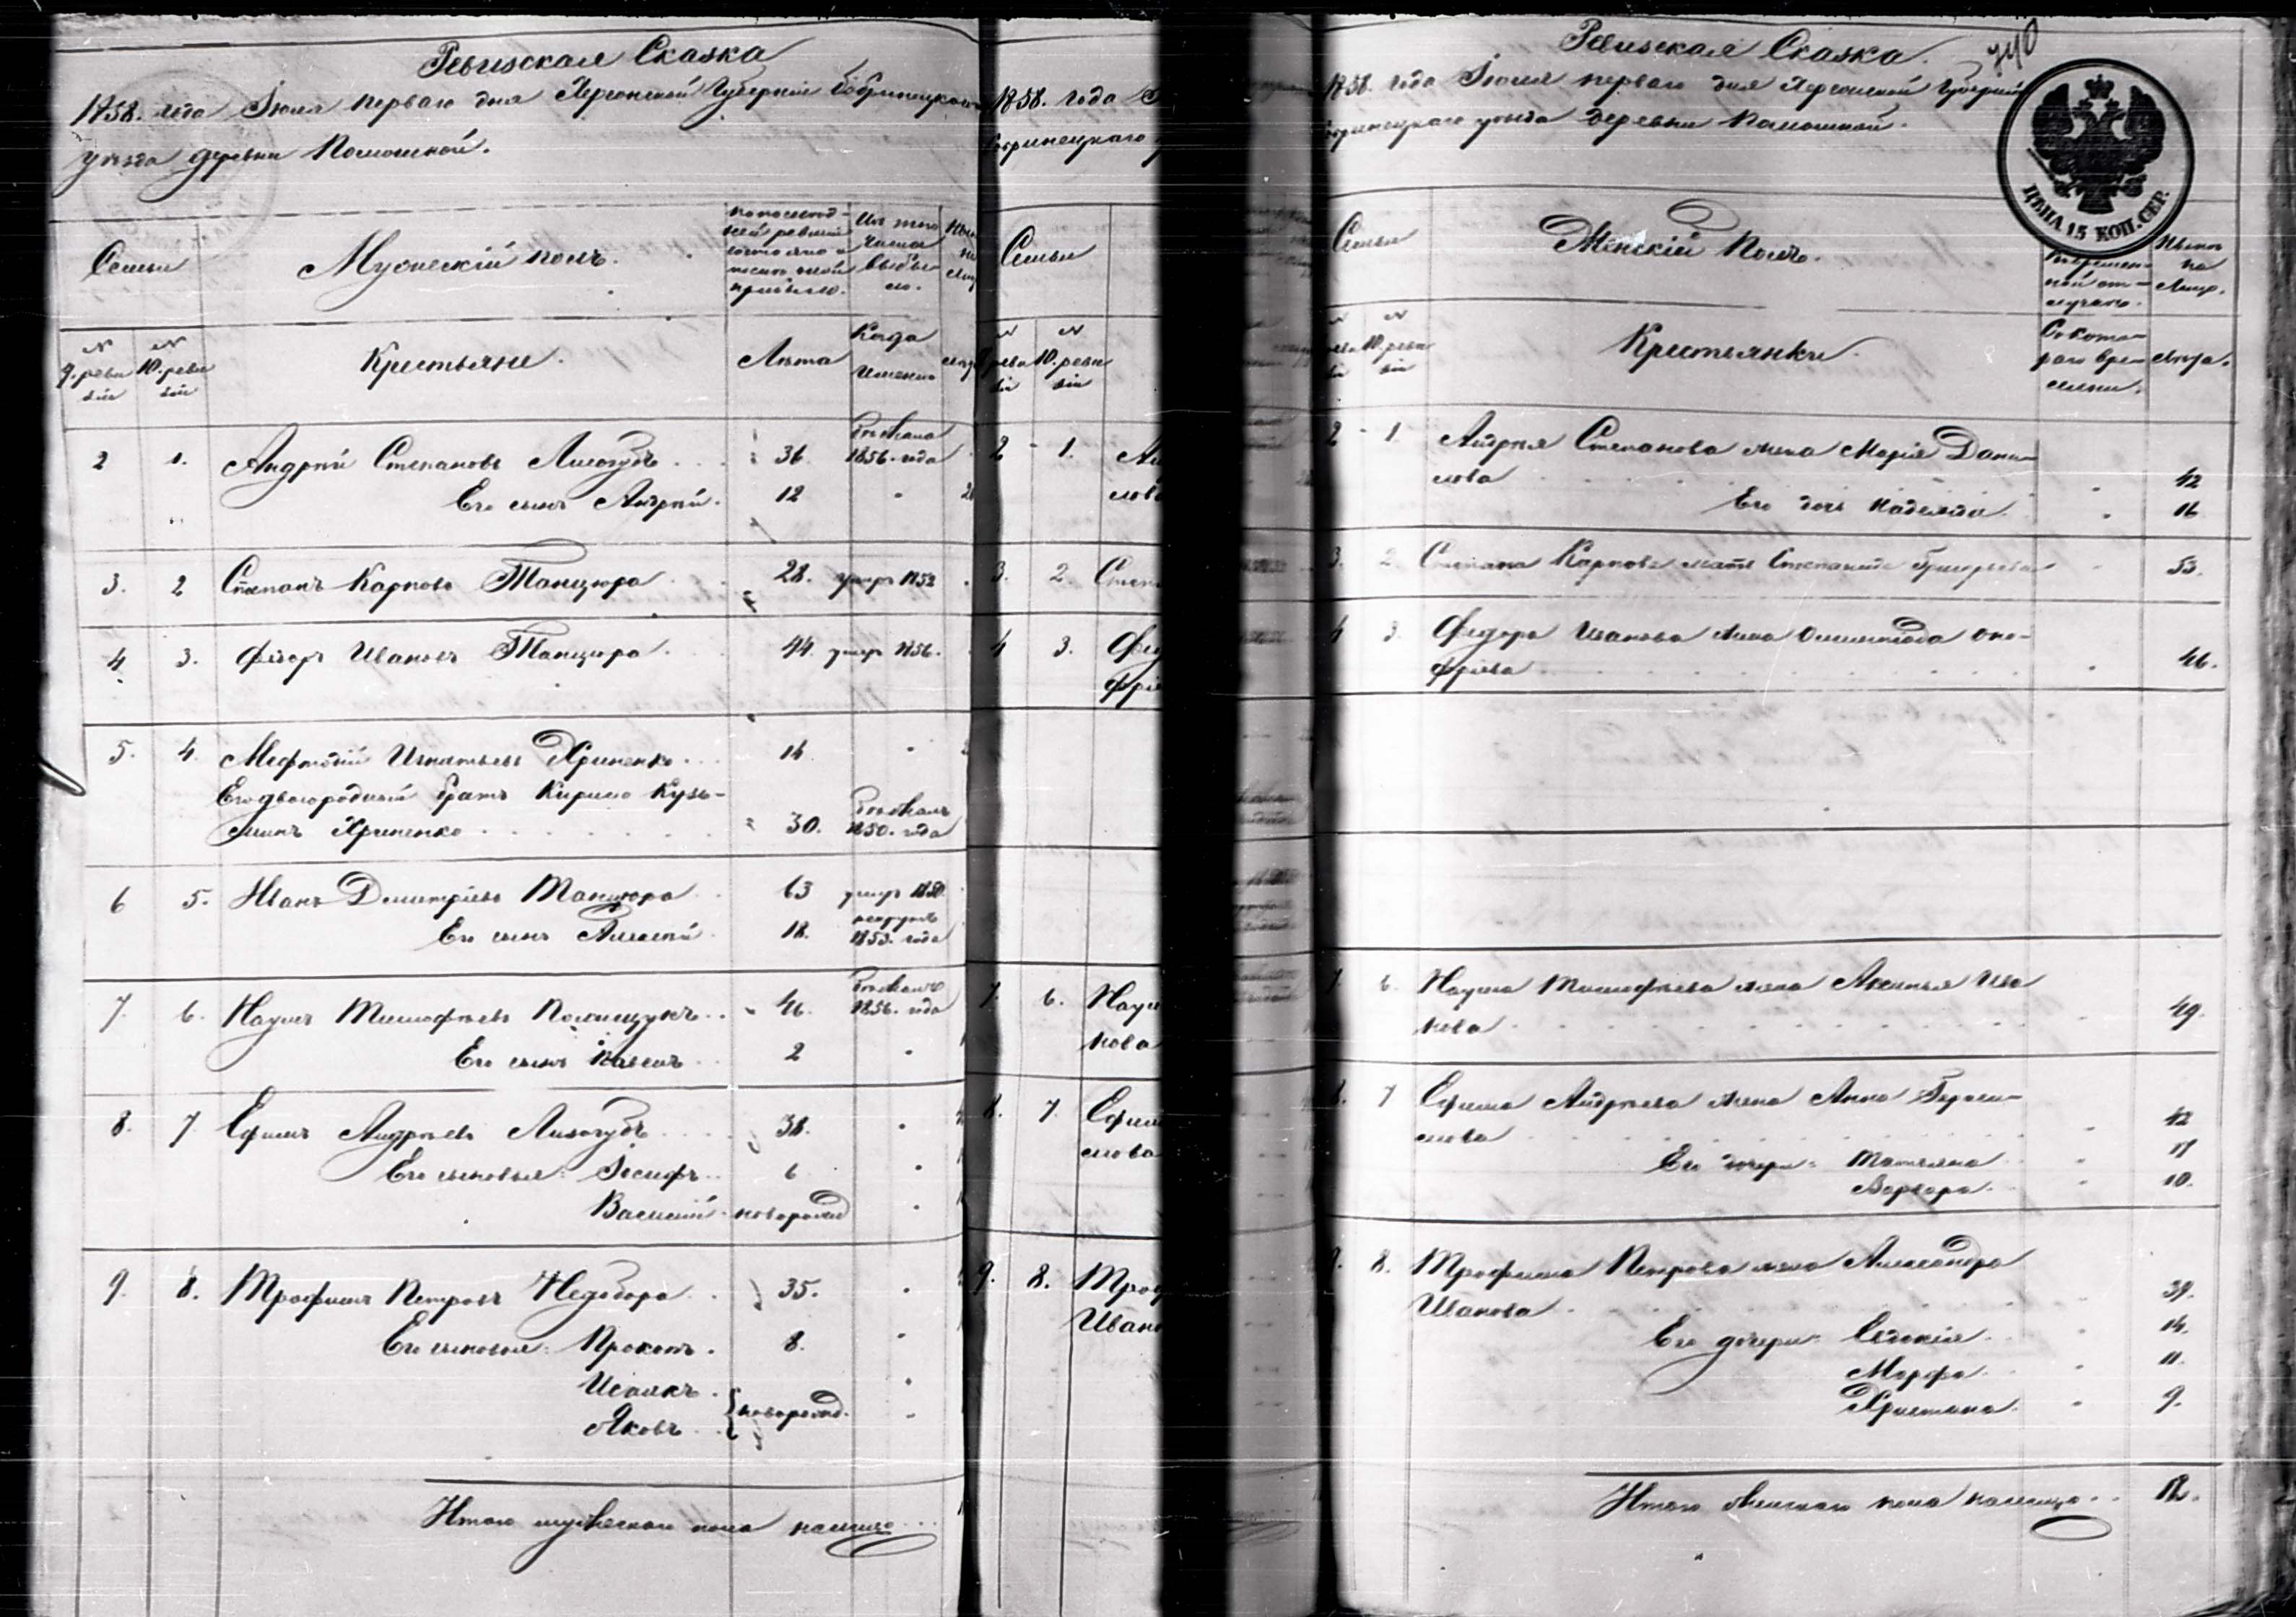 Ревизская Сказка
1858. года Іюня перваго дня Херсонской Губерніи Бобринецкаго
уѣзда деревни Помошной.
Семьи
Мужескій полъ.
По послѣд-
ней ревизіи
состояло и
послѣ оной
прибыло.
Изъ того
числа
выбы-
ло.
N
9. реви
зіи
N
10. реви
зіи
Крестьяне.
Лѣта
Когда
Именно
2 1. Андрей Степановъ Лизогубъ 36. Бѣжалъ 1856. года
Его сынъ Андрей. 12
3. 2 Степанъ Карповъ Танцюра 28. умеръ 1852
4 3. Федоръ Ивановъ Танцюра 44. умеръ 1856.
5. 4. Мефтодій Игнатьевъ Хрипенко 14
Его двоюродный братъ Кирило Кузь-
минъ Хрипенко 30. Бѣжалъ 1850. года
6 5. Иванъ Дмитріевъ Танцюра 63 умеръ 1850.
Его сынъ Алексѣй 18. рекрутъ 1853. года
7. 6. Наумъ Тимофѣевъ Полищукъ 46. Бѣжалъ 1856. года
Его сынъ Павелъ 2
8. 7 Ефимъ Андрѣевъ Лизогубъ 38.
Его сыновья: Іосифъ 6
Василій новорожд
9. 8. Трофимъ Петровъ Недобора 35.
Его сыновья: Прокопъ. 8.
Исаакъ
Яковъ новорожд.
Итого мужескаго пола налицо
1858. года
Бобринецкаго
Семьи
N
реви
зіи
N
10. реви
зіи
2 1.
3. 2. Степ
4 3. Фед
фріе
7. 6. Наум
нова
8. 7. Ефим
мова
9. 8. Троф
Ивано
Ревизская Сказка.
740
1858. года Іюня перваго дня Херсонской Губерніи
Бобринецкаго уѣзда деревни Помошной.
ЦѢНА 15 КОП. СЕР.
Семьи
Женскій Полъ.
Во времен-
ной от-
лучкѣ.
Нынѣ
на
лицо.
N
реви
зіи
N
10. реви
зіи
Крестьянки.
Съ кото-
раго вре-
мени.
Лѣта.
2 1. Андрея Степанова жена Марія Дани-
лова 42
Его дочь Надежда 16
3. 2 Степана Карпова мать Степанида Григорьева 53.
4 3. Федора Иванова жена Олимпіада Оно-
фріева 46.
7. 6. Наума Тимофѣева жена Аксинья Ива
нова 49.
8. 7 Ефима Андрѣева жена Анна Гераси-
мова 42
Его дочери: Татьяна 17
Варвара. 10.
9. 8. Трофима Петрова жена Александра
Иванова 39.
Его дочери: Евдокія 14.
Марфа 11.
Христина. 9.
Итого женскаго пола налицо 12.